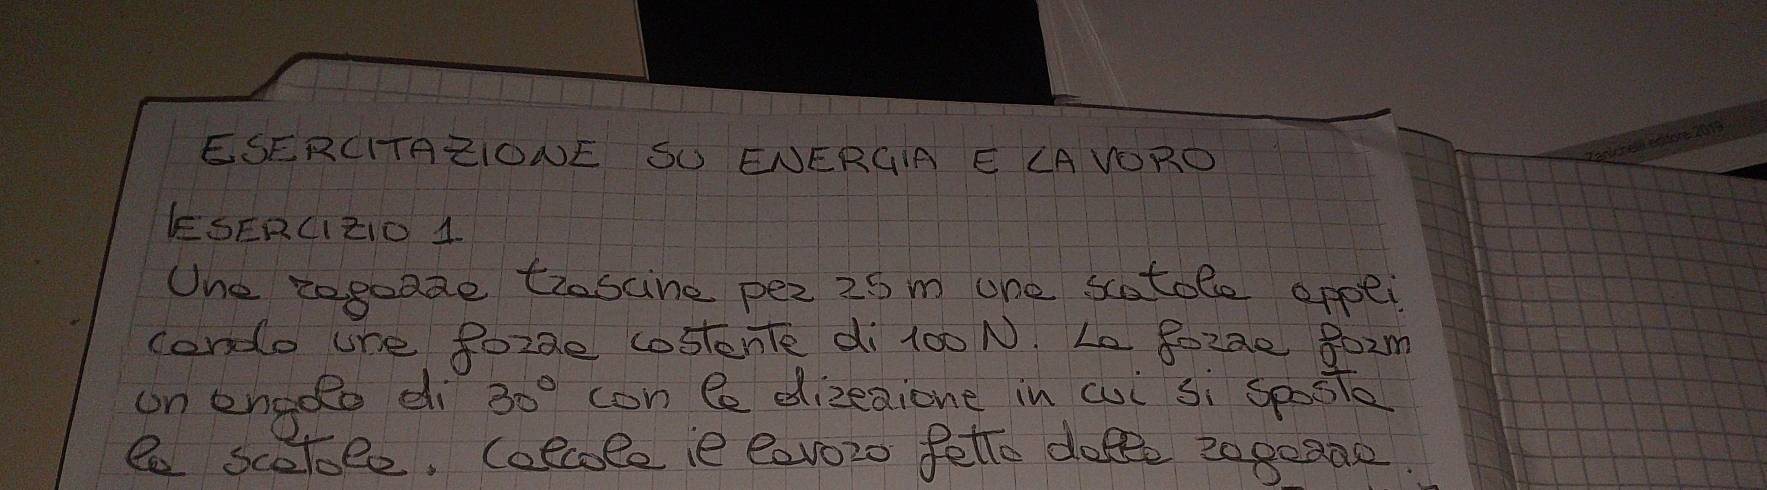 ESERCITAZIONE SU ENERGIA E LAVORO
ESERCIZIO 1
Una ragazza trascina per 25 m una scatola appli
cando una forza costante di 100 N. La forza form
un angolo di 30° con la direzione in cui si sposta
la scatola. Calcola il lavoro fatto dalla ragazza.
Zanichelli editore 2019